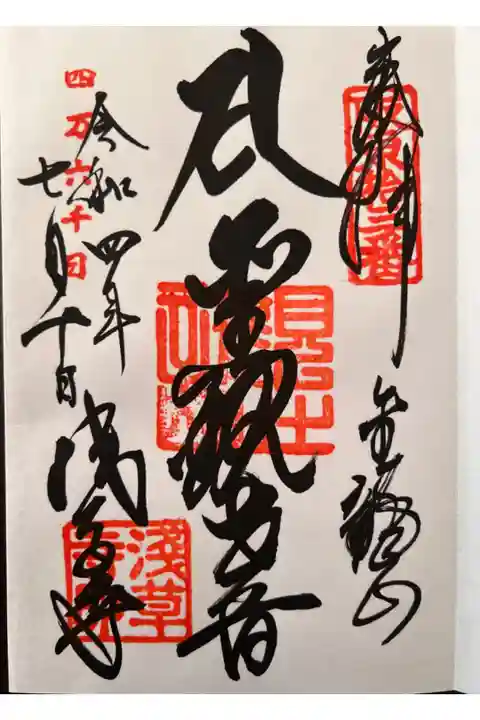 奉拝
金龍山
坂東拾三番
聖観世音
令和四年
七月十日
四万六千日
浅草寺
浅草寺印